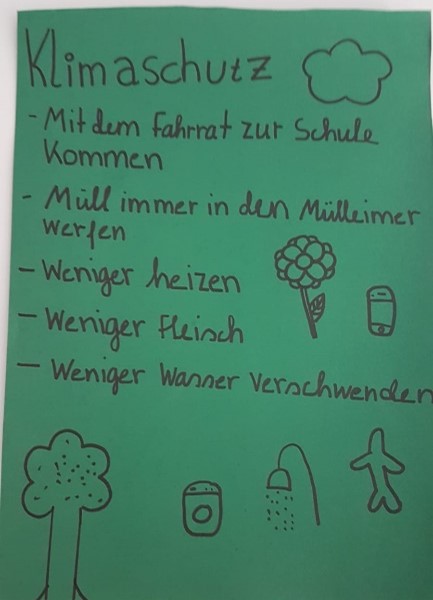 Klimaschutz
- Mit dem Fahrrat zur Schule
Kommen
- Müll immer in den Mülleimer
werfen
- Weniger heizen
- Weniger Fleisch
- Weniger Wasser Verschwenden